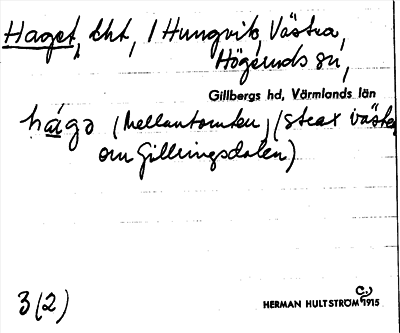 Haget, tht, / Hungvik, Västra,
Högeruds sn,
Gillbergs hd, Värmlands län
hágə (Mellantomten, (strax väster
om Gillringsdalen)
3(2)
HERMAN HULTSTRÖM (C.) 1915